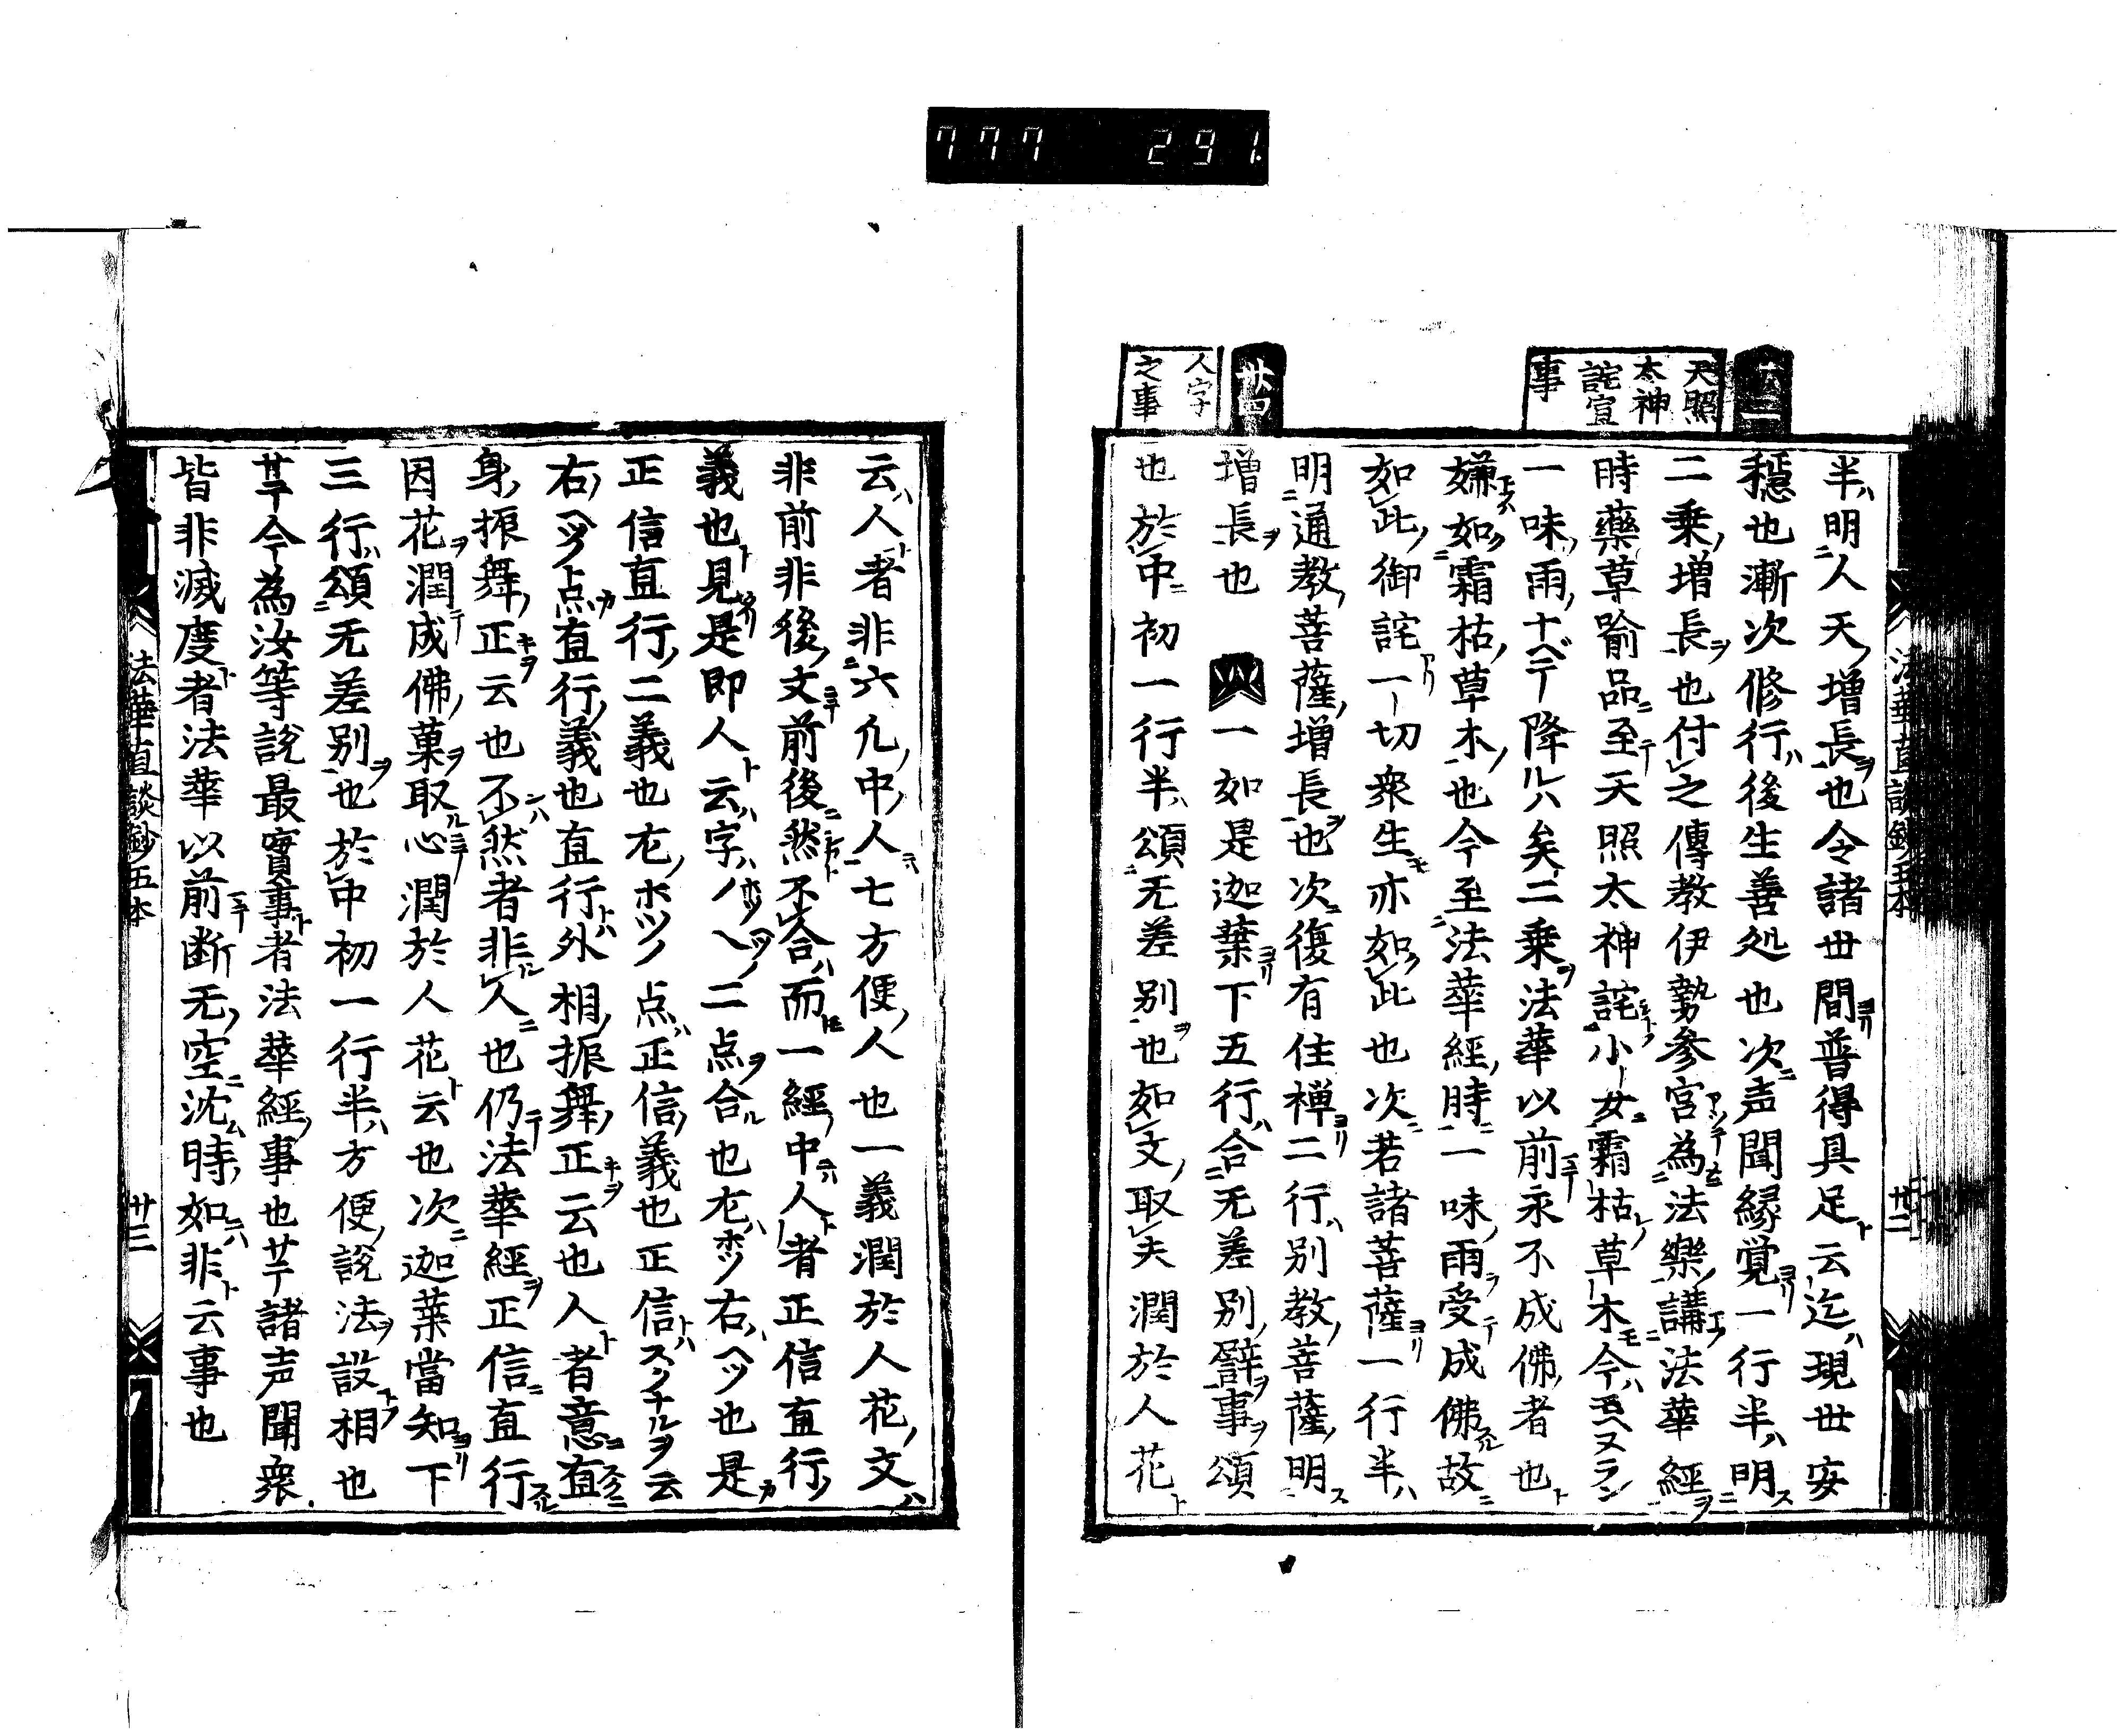 777 291.
天照
太神
詫宣
事
廿四
人字
之事
半ハ明ニ人天ノ増長ヲ也令諸世間ヨリ普得具足ト云迄ハ現世安
穏也漸次修行ハ後生善処也次ニ声聞縁覚ヨリ一行半ハ明ス
二乗ノ増長ヲ也付之傳教伊勢参宮為法樂講法華經ヲ
時藥草喩品ニ至テ天照太神詫小女ニ霜枯ノ草木モ今ハ
一味ノ雨ノ十ベテ降ルハ矣二乗ヲ法華以前永不成佛者也ト
嫌如霜枯ノ草木ノ也今至法華經ノ時ニ一味ノ雨ヲ受テ成佛故ニ
如此ノ御詫アリ一切衆生モ亦如此也次ニ若諸菩薩ヨリ一行半ハ
明ニ通教ノ菩薩ノ増長ヲ也次ニ復有住禅ヨリ二行ハ別教ノ菩薩ノ明ス
増長ヲ也 一如是迦葉ヨリ下五行ハ合ニ无差別ノ譬ヲ事ヲ頌
也於中ニ初一行半ハ頌无差別ヲ也如文ノ取夫潤於人花ト
法華直談鈔五本 廿二
云ハ人ト者非六凢ノ中ノ人ニ七方便ノ人也一義潤於人花ノ文ハ
非前非後ノ文前後ニ然不合ハ而一經ノ中人ト者正信直行ノ
義也ト見是即人ト云字ハノホツヘツノ二点ヲ合ル也尢ハホツ右ハヘツ也是
正信直行ノ二義也尢ノホツノ点ハ正信ノ義也正信トハスクナルヲ云
右ノヘツノ点カ直行ノ義也直行トハ外相ノ振舞ノ正キヲ云也人ト者意直
身ノ振舞ノ正キヲ云也不然者非人ニ也仍テ法華經ヲ正信ニ直行
因花ヲ潤テ成佛ノ菓ヲ取ル心潤於人花ト云也次ニ迦葉當知ヨリ下
三行ハ頌ニ无差別ヲ也於中初一行半ハ方便ノ説法ヲ設相也
今為汝等説最實事ト者法華經ノ事也諸声聞衆
皆非滅度ト者法華以前断无ノ空ニ沈ム時ノ如非ト云事也
法華直談鈔五本 廿三